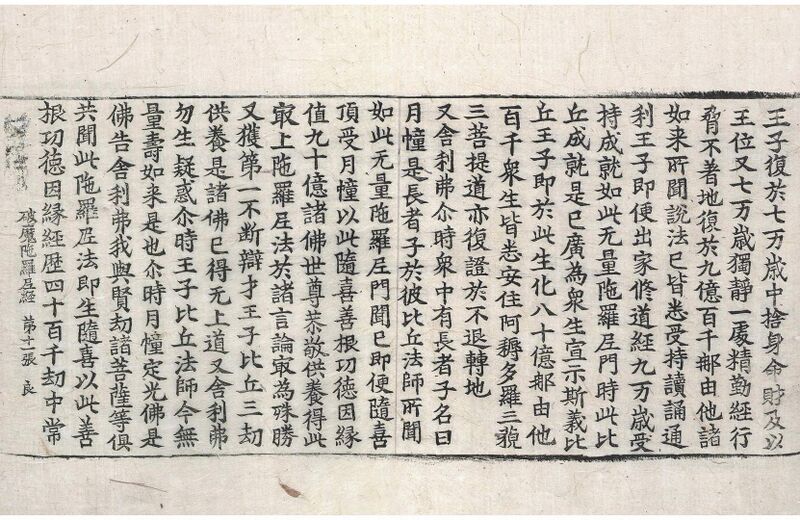 王子復於七万歳中捨身命財及以
王位又七万歳獨静一處精勤経行
脅不著地復於九億百千𨚗由他諸
如来所聞説法已皆悉受持讀誦通
利王子即便出家修道経九万歳受
持成就如此无量陁羅尼門時此比
丘成就是已廣為衆生宣示斯義比
丘王子即於此生化八十億𨚗由他
百千衆生皆悉安住阿耨多羅三藐
三菩提道亦復證於不退轉地
又舍利弗尒時衆中有長者子名曰
月幢是長者子於彼比丘法師所聞
如此无量陁羅尼門聞已即便隨喜
頂受月幢以此隨喜善根功徳因縁
值九十億諸佛世尊恭敬供養得此
㝡上陁羅尼法於諸言論㝡為殊勝
又獲第一不断辯才王子比丘三劫
供養是諸佛已得无上道又舍利弗
勿生疑惑尒時王子比丘法師今無
量壽如来是也尒時月幢定光佛是
佛告舍利弗我與賢劫諸菩薩等俱
共聞此陁羅尼法即生隨喜以此善
根功徳因縁経歴四十百千劫中常
破魔陁羅尼経 第十一張 良